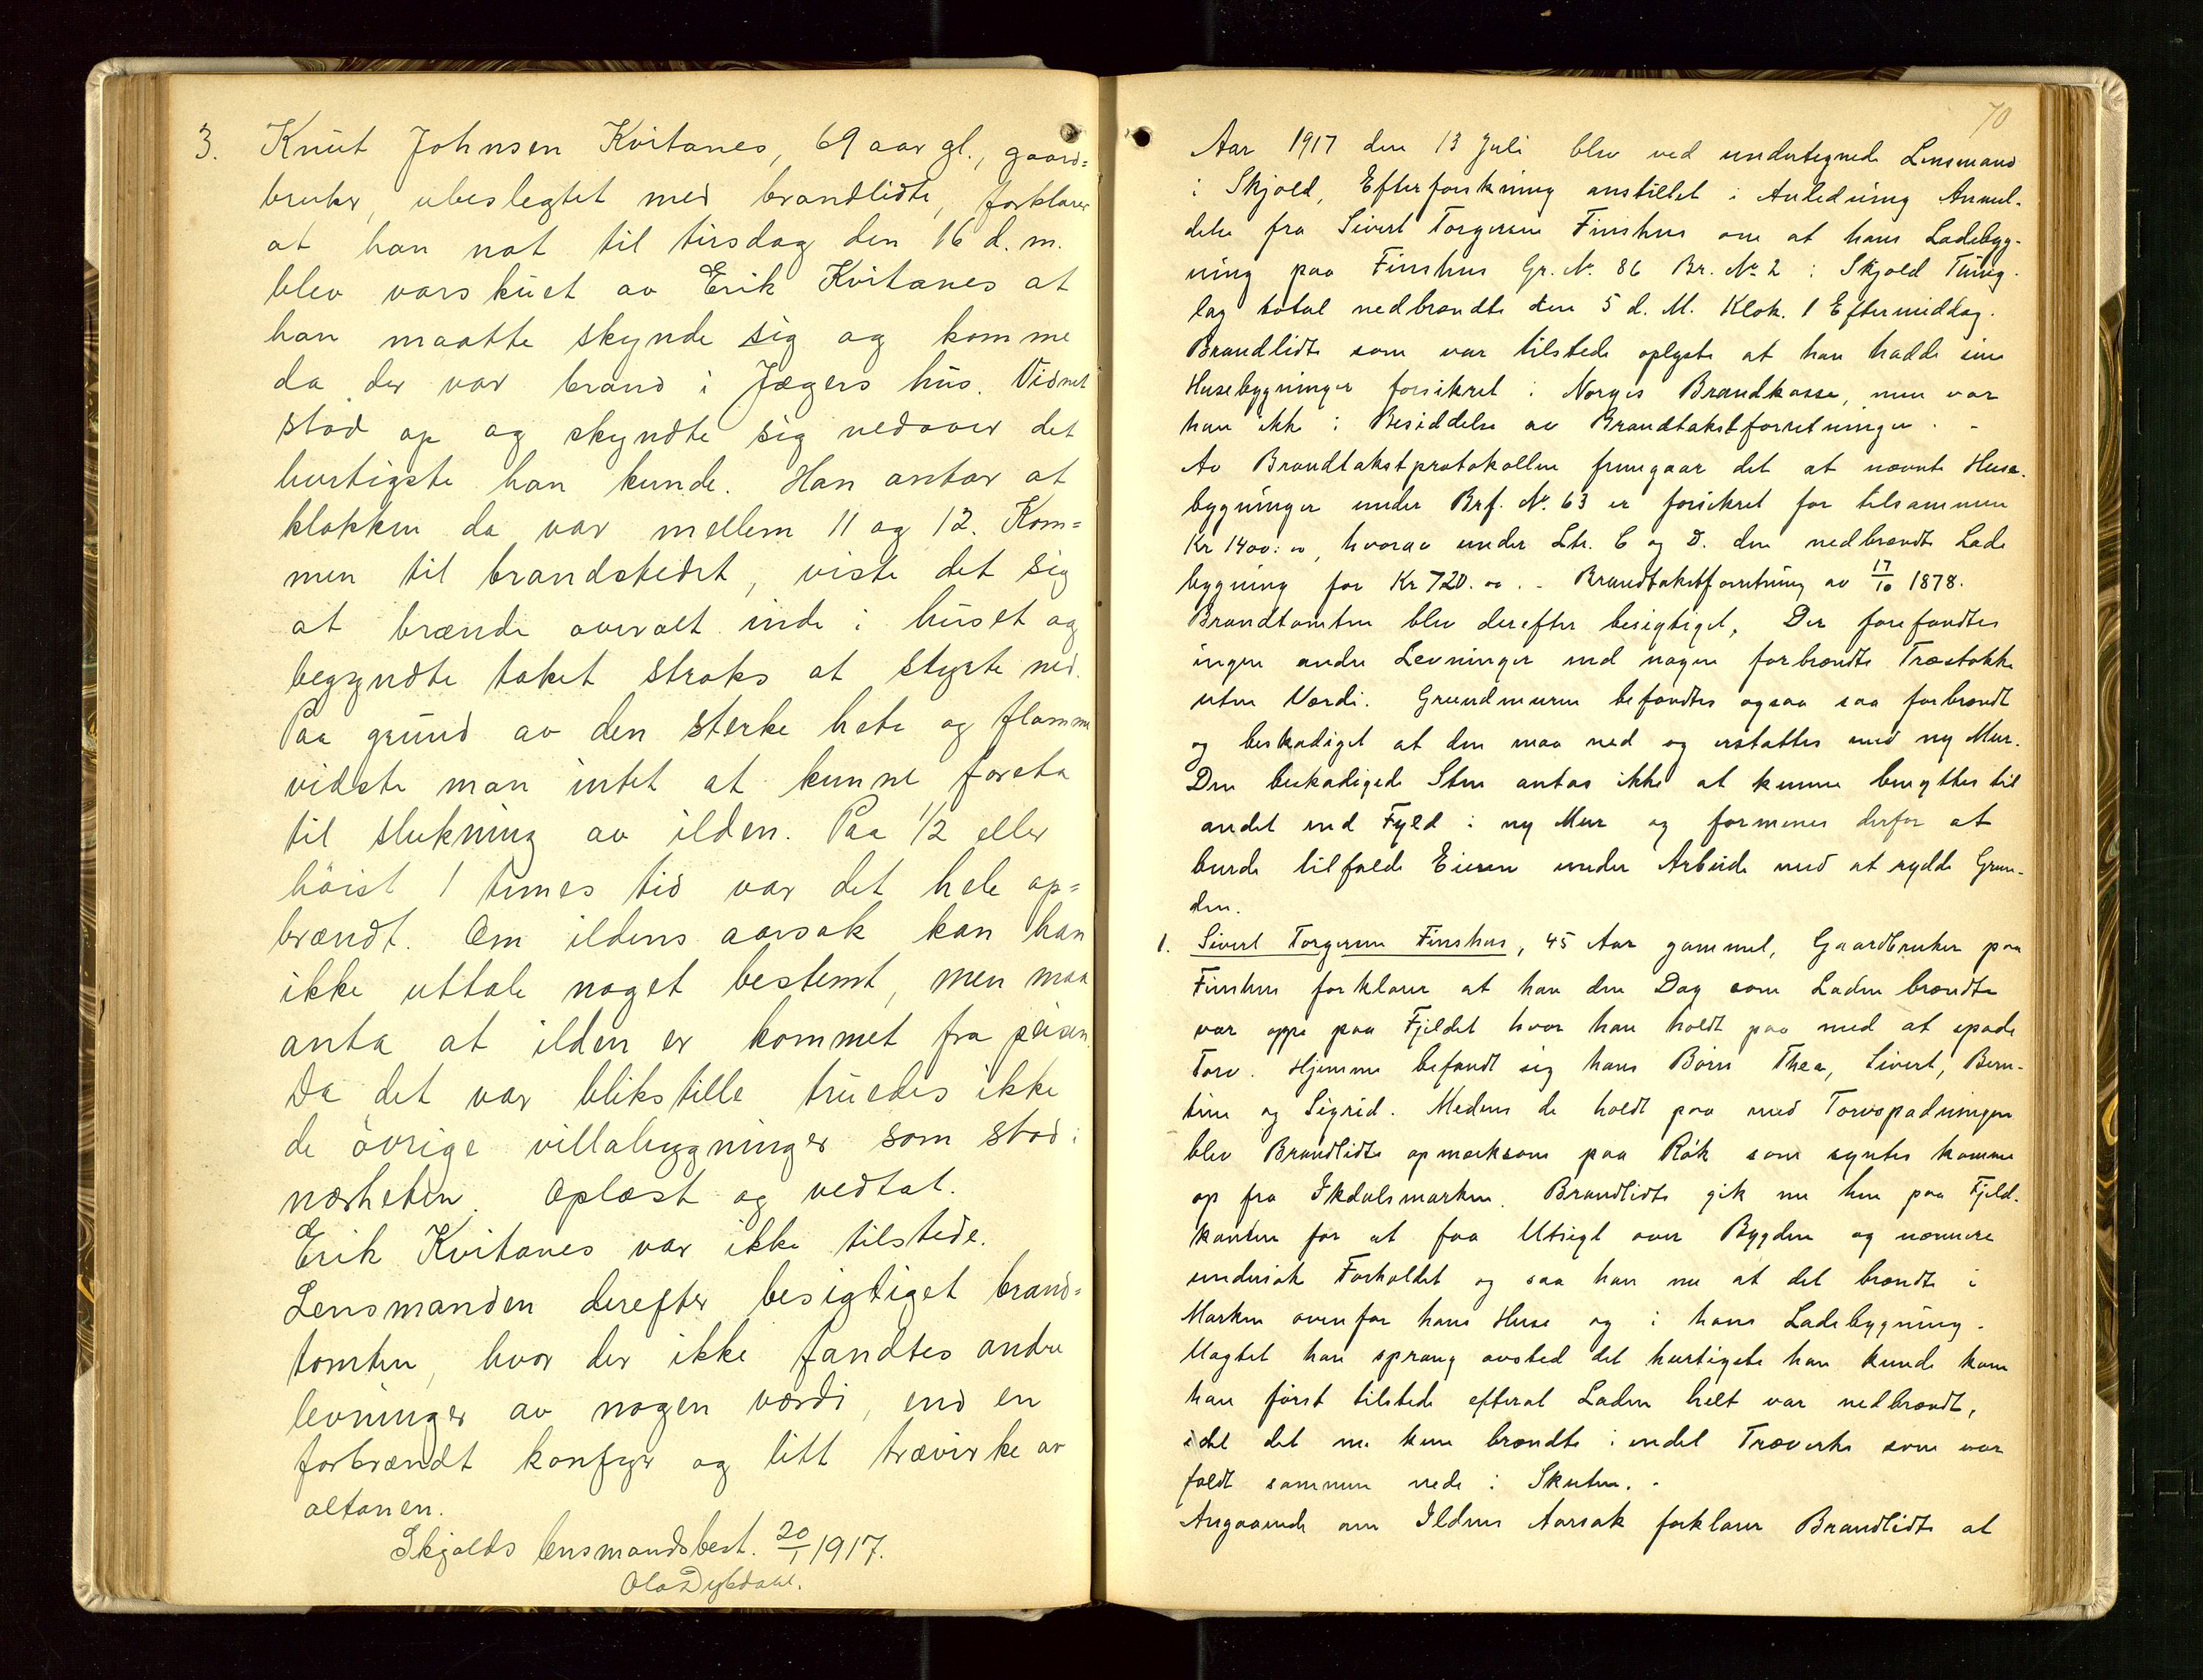 3. Knut Johnsen Kvitanes, 69 aar gl., gaard=
bruker, ubeslegtet med brandlidte, forklarer
at han nat til tirsdag den 16 d. m.
blev varskuet av Erik Kvitanes at
han maatte skynde sig og komme
da der var brand i Jægers hus. Vidnet
stod op og skyndte sig nedover det
hurtigste han kunde. Han antar at
klokken da var mellem 11 og 12. Kom=
men til brandstedet, viste det sig
at brænde overalt inde i huset og
begyndte taket straks at styrte ned.
Paa grund av den sterke hete og flamme
vidste man intet at kunne foreta
til slukning av ilden. Paa 1/2 eller
höist 1 times tid var det hele op=
brændt. Om ildens aarsak kan han
ikke uttale noget bestemt, men maa
anta at ilden er kommet fra peisen.
Da det var blikstille truedes ikke
de övrige villabygninger som stod i
nærheten. Oplæst og vedtat.
Erik Kvitanes var ikke tilstede.
Lensmanden derefter besigtiget brand=
tomten, hvor der ikke fandtes andre
levninger av nogen værdi, end en
forbrændt komfyr og litt trævirke av
altanen.
Skjolds lensmandsbest. 20/1 1917.
Ola Dybdahl.
70
Aar 1917 den 13 Juli blev ved undertegnede Lensmand
i Skjold, Efterforskning anstillet i Anledning Anmel-
delse fra Sivert Torgersen Finshus om at hans Ladebyg-
ning paa Finshus Gr. No. 86 Br. No. 2 i Skjold Thing-
lag total nedbrændte den 5 d. M. Klok. 1 Eftermiddag.
Brandlidte som var tilstede oplyste at han hadde sine
Husebygninger forsikret i Norges Brandkasse, men var
han ikke i Besiddelse av Brandtakstforretningen. -
Av Brandtakstprotokollen fremgaar det at nævnte Huse-
bygninger under Brf. No. 63 er forsikret for tilsammen
Kr 1400: oo, hvorav under Ltr. C og D. den nedbrændte Lade
bygning for Kr 720. oo. - Brandtakstforretning av 17/10 1878.
Brandtomten blev derefter besigtiget. Der forefandtes
ingen andre Levninger end nogen forbrændte Træstokke
uten Værdi. Grundmuren befandtes ogsaa saa forbrændt
og beskadiget at den maa ned og erstattes med ny Mur.
Den beskadigede Sten antas ikke at kunne benyttes til
andet end Fyld i ny Mur og formenes derfor at
burde tilfalde Eieren under Arbeide med at rydde Grun-
den.
1. Sivert Torgersen Finshus, 45 Aar gammel, Gaardbruker paa
Finshus forklarer at han den Dag som Laden brændte
var oppe paa Fjeldet hvor han holdt paa med at spade
Torv. Hjemme befandt sig hans Börn Thea, Sivert, Bern-
tine og Sigrid. Medens de holdt paa med Torvspadningen
blev Brandlidte opmerksom paa Rök som syntes komme
op fra Ikdalsmarken. Brandlidte gik nu hen paa Fjeld-
kanten for at faa Utsigt over Bygden og nærmere
undersöke Forholdet og saa han nu at det brændte i
Marken ovenfor hans Huse og i hans Ladebygning.
Uagtet han sprang avsted det hurtigste han kunde kom
han först tilstede efterat Laden helt var nedbrændt,
idet det nu kun brændte i endel Træverke som var
faldt sammen nede i Skuten. -
Angaaende om Ildens Aarsak forklarer Brandlidte at